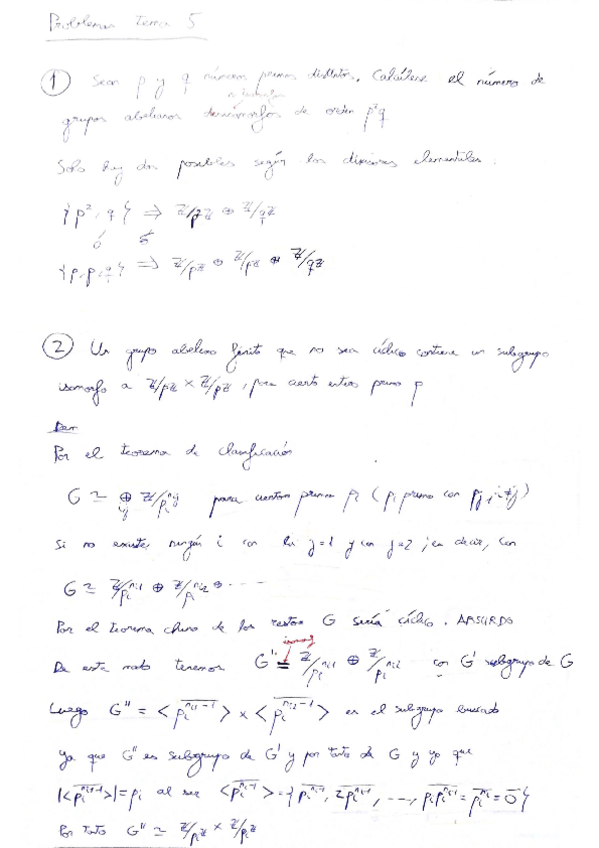 Problemas tema 5
① Sean p y q números primos distintos. Calcúlese el número de
grupos abelianos de orden p²q
Solo hay dos posibles según los divisores elementales:
{p², q} ⇒ ℤ/pℤ ⊕ ℤ/qℤ
ó
{p, p, q} ⇒ ℤ/pℤ ⊕ ℤ/pℤ ⊕ ℤ/qℤ
② Un grupo abeliano finito que no sea cíclico contiene un subgrupo
isomorfo a ℤ/pℤ × ℤ/pℤ, para cierto entero primo p
Dem
Por el teorema de clasificación
G ≃ ⊕ᵢⱼ ℤ/pᵢ^nᵢⱼ para ciertos primos pᵢ (pᵢ primo con pⱼ, i≠j)
Si no existe ningún i con j=1 y con j=2, es decir, con
G ≃ ℤ/pᵢ^nᵢ₁ ⊕ ℤ/pᵢ^nᵢ₂ ⊕ ····
Por el teorema chino de los restos G sería cíclico. ABSURDO
De este modo tenemos ℤ/pᵢ^nᵢ₁ ⊕ ℤ/pᵢ^nᵢ₂ con G' subgrupo de G
Luego G'' = <pᵢ^nᵢ₁-1> × <pᵢ^nᵢ₂-1> es el subgrupo buscado
ya que G'' es subgrupo de G' y por tanto de G y ya que
|<pᵢ^nᵢ-1>| = pᵢ al ser <pᵢ^nᵢ-1> = {pᵢ^nᵢ-1, 2pᵢ^nᵢ-1, ..., pᵢpᵢ^nᵢ-1 = pᵢ^nᵢ = 0}
Por tanto G'' ≃ ℤ/pᵢℤ × ℤ/pᵢℤ